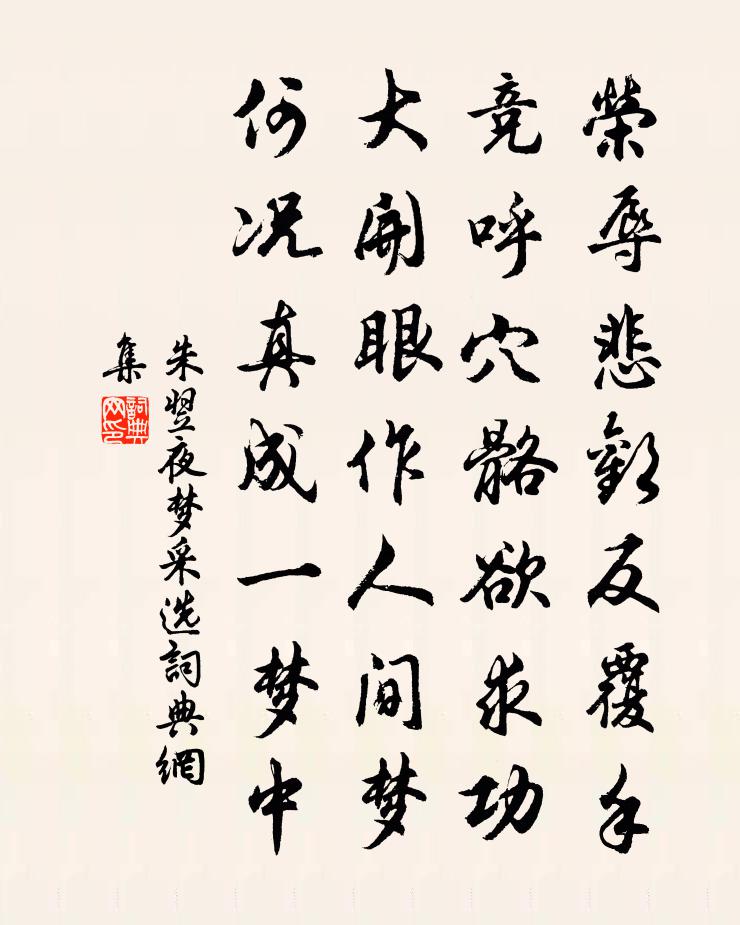 榮辱悲歡反覆手
竞呼穴骼欲求功
大開眼作人间梦
何况真成一梦中
朱翌夜梦采选詞典網
集
詞典网印